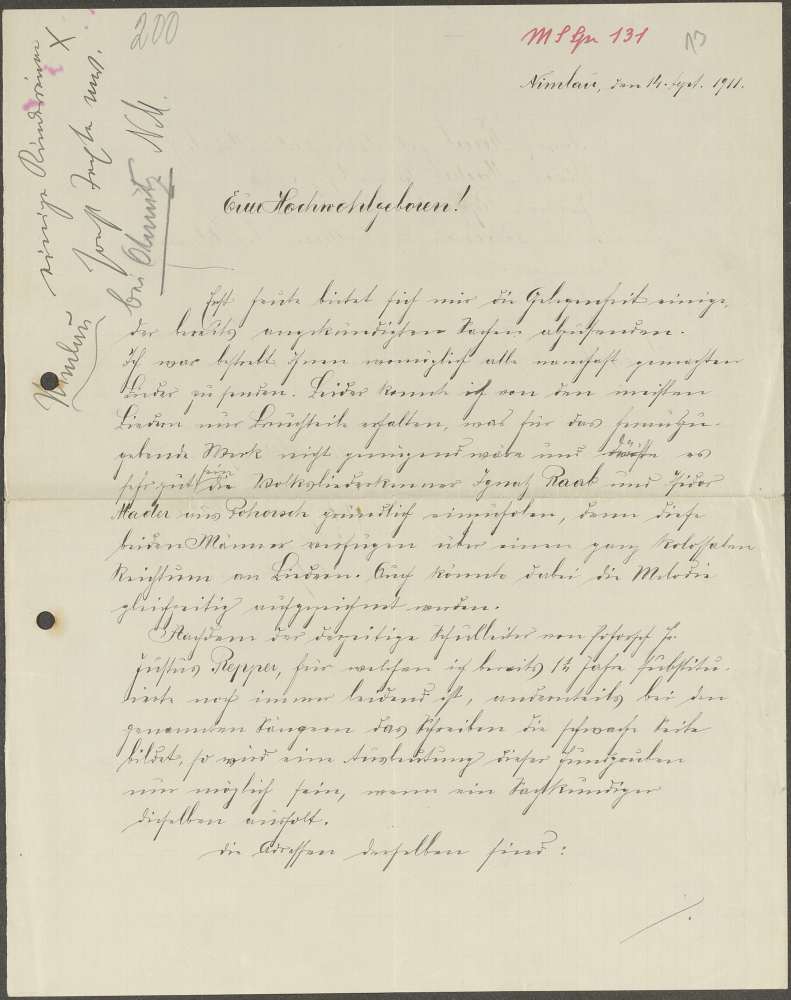 200
MS Gn 131
13
einige Kinderreime
X
sonst Texte nur.
Nimlau
bei Olmütz N.M.
Nimlau, den 14. Sept. 1911.
Euer Hochwohlgeboren!
Erst heute bietet sich mir die Gelegenheit einige,
der bereits angekündigten Sachen abzusenden.
Ich war bestrebt Ihnen womöglich alle namhaft gemachten
Lieder zu senden. Leider konnte ich von den meisten
Liedern nur Bruchteile erhalten, was für das herauszu-
gebende Werk nicht genügend wäre und dürfte es
sehr gut sein die Volksliederkenner Ignatz Raab und Isidor
Mader aus Pohorsch gründlich auszuholen, denn diese
beiden Männer verfügen über einen ganz kolossalen
Reichtum an Liedern. Auch könnte dabei die Melodie
gleichzeitig aufgezeichnet werden.
Nachdem der derzeitige Schulleiter von Pohorsch H.
Justus Repper, für welchen ich bereits 1½ Jahre substitu-
ierte noch immer leidend ist, andernteils bei den
genannten Sängern das Schreiben die schwache Seite
bildet, so wird eine Ausbeutung dieser Fundgruben
nur möglich sein, wenn ein Sachkundiger
dieselben ausholt.
Die Adressen derselben sind: